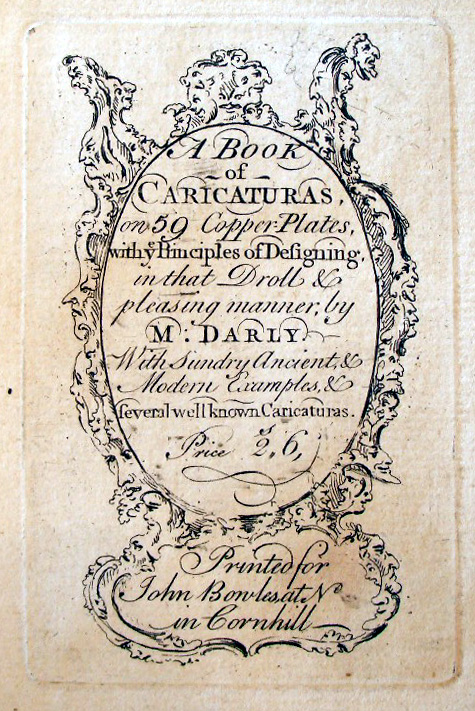 A BOOK
of
CARICATURAS,
on 59 Copper-Plates,
with yᵉ Principles of Designing,
in that Droll &
pleasing manner, by
Mʳ. DARLY.
With sundry Ancient, &
Modern Examples, &
several well known Caricaturas.
Price 2ˢ, 6,
Printed for
John Bowles, at Nᵒ
in Cornhill